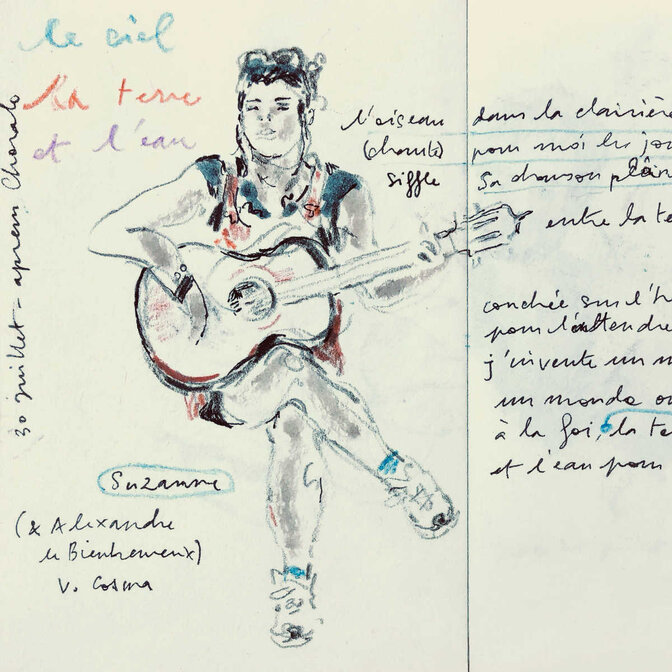 le ciel
la terre
et l'eau
30 juillet - aprem Chorale
l'oiseau
(chante)
siffle
Suzanne
(& Alexandre
le Bienheureux)
V. Cosma
dans la clairière
pour moi les jou
sa chanson
entre la te
couchée sur l'h
pour l'attendre
j'invente un m
un monde où
à la foi, la te
et l'eau pour